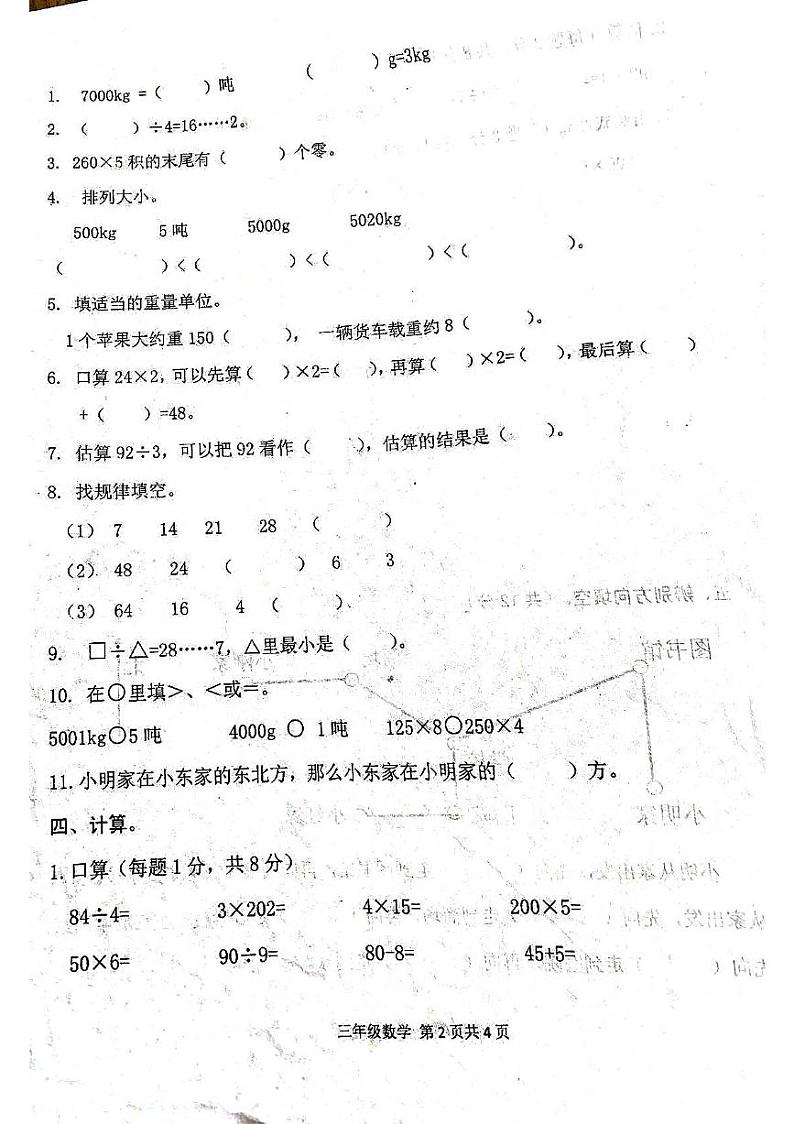 1. 7000kg =（ ）吨 （ ）g=3kg
2. （ ）÷4=16……2。
3. 260×5 积的末尾有（ ）个零。
4. 排列大小。
500kg 5 吨 5000g 5020kg
（ ）<（ ）<（ ）<（ ）。
5. 填适当的重量单位。
1 个苹果大约重 150（ ）， 一辆货车载重约 8（ ）。
6. 口算 24×2，可以先算（ ）×2=（ ），再算（ ）×2=（ ），最后算（ ）
+（ ）=48。
7. 估算 92÷3，可以把 92 看作（ ），估算的结果是（ ）。
8. 找规律填空。
（1） 7 14 21 28 （ ）
（2） 48 24 （ ） 6 3
（3） 64 16 4 （ ）
9. □÷△=28……7，△里最小是（ ）。
10. 在○里填>、<或=。
5001kg○5 吨 4000g ○ 1 吨 125×8○250×4
11.小明家在小东家的东北方，那么小东家在小明家的（ ）方。
四、计算。
1.口算（每题 1 分，共 8 分）
84÷4= 3×202= 4×15= 200×5=
50×6= 90÷9= 80-8= 45+5=
三年级数学 第 2 页共 4 页